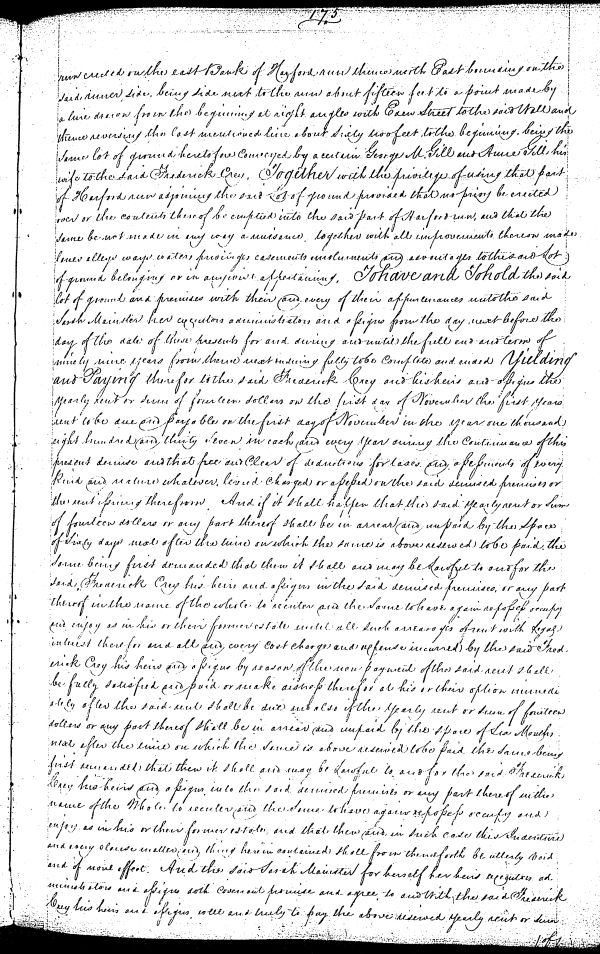 175
now erected on the east Bank of Harford run thence north East bounding on the
said inner side, being side next to the run about fifteen feet to a point made by
a line drawn from the beginning at right angles with Eden Street to the said Wall and
thence reversing the last mentioned line about sixty two feet to the beginning, being the
same lot of ground heretofore conveyed by a certain George M. Gill and Anne Gill his
wife to the said Frederick Crey. Together with the privilege of using that part
of Harford run adjoining the said Lot of ground provided that no privy be erected
over or the contents thereof be emptied into the said part of Harford run, and that the
same be not made in any way a nuisance, together with all improvements thereon made
lanes alleys ways waters privileges easements emoluments and advantages to the said Lot
of ground belonging or in anywise appertaining. To have and To hold the said
lot of ground and premises with their and every of their appurtenances unto the said
Sarah Mainster her executors administrators and assigns from the day next before the
day of the date of these presents for and during and until the full end and term of
ninety nine years from thence next ensuing fully to be complete and ended Yielding
and Paying therefor to the said Frederick Crey and his heirs and assigns the
yearly rent or sum of fourteen dollars on the first day of November the first years
rent to be due and payable on the first day of November in the year one thousand
eight hundred and thirty seven in each and every year during the Continuance of this
present demise and that free and Clear of deductions for taxes and assessments of every
kind and nature whatever, levied Charged or assessed on the said demised premises or
the rent issuing therefrom. And if it shall happen that the said yearly rent or sum
of fourteen dollars or any part thereof shall be in arrear and unpaid by the space
of Sixty days next after the time on which the same is above reserved to be paid, the
same being first demanded that then it shall and may be Lawful to and for the
said, Frederick Crey his heirs and assigns in the said demised premises, or any part
thereof in the name of the whole to reenter and the same to have again repossess occupy
and enjoy as in his or their former estate until all such arrearages of rent with Legal
interest therefor and all and every cost charge and expense incurred by the said Fred
erick Crey his heirs and assigns by reason of the non payment of the said rent shall
be fully satisfied and paid or make distress therefor at his or their option immedi
ately after the said rent shall be due and also if the yearly rent or sum of fourteen
dollars or any part thereof shall be in arrear and unpaid by the space of Six Months
next after the time on which the same is above reserved to be paid the same being
first demanded that then it shall and may be Lawful to and for the said Frederick
Crey his heirs and assigns into the said demised premises or any part thereof in the
name of the Whole to reenter and the same to have again repossess occupy and
enjoy as in his or their former estate, and that then and in such case this Indenture
and every clause matter and thing herein contained shall from thenceforth be utterly void
and of none effect. And the said Sarah Mainster for herself her heirs executors ad
ministrators and assigns doth Covenant promise and agree to and With the said Frederick
Crey his heirs and assigns, well and truly to pay the above reserved yearly rent or sum